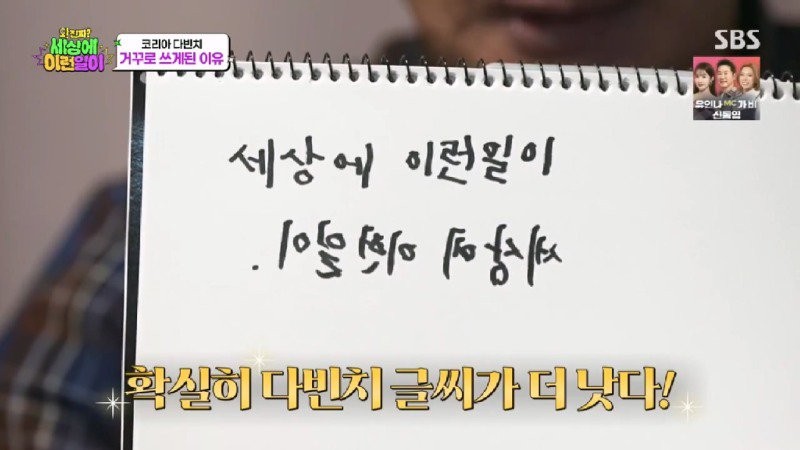 와! 진짜?
세상에
이런일이
코리아 다빈치
거꾸로 쓰게된 이유
SBS
유인나 MC 가비
신동엽
세상에 이런일이
세상에 이런일이.
확실히 다빈치 글씨가 더 낫다!